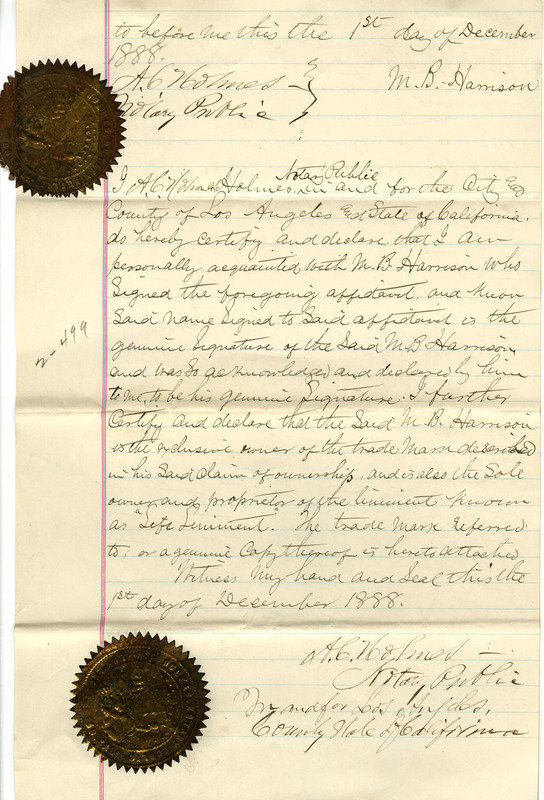 to before me this the 1st day of December
1888.
A. C. Holmes
Notary Public
M. B. Harrison
Notary Public
I A. C. Holmes, in and for the City and
County of Los Angeles and State of California.
do hereby certify and declare that I am
personally acquainted with M. B. Harrison who
Signed the foregoing affidavit, and know
Said name signed to Said affidavit is the
genuine Signature of the Said M. B. Harrison
and was So acknowledged and declared by him
to me, to be his genuine Signature. I further
Certify and declare that the Said M. B. Harrison
is the exclusive owner of the trade Mark described
in his Said Claim of ownership, and is also the Sole
owner and proprietor of the liniment Known
as "Life Liniment". The trade Mark referred
to, or a genuine Copy thereof is hereto attached
Witness My hand and Seal this the
1st day of December 1888.
A. C. Holmes
Notary Public
In and for Los Angeles,
County State of California
2-499